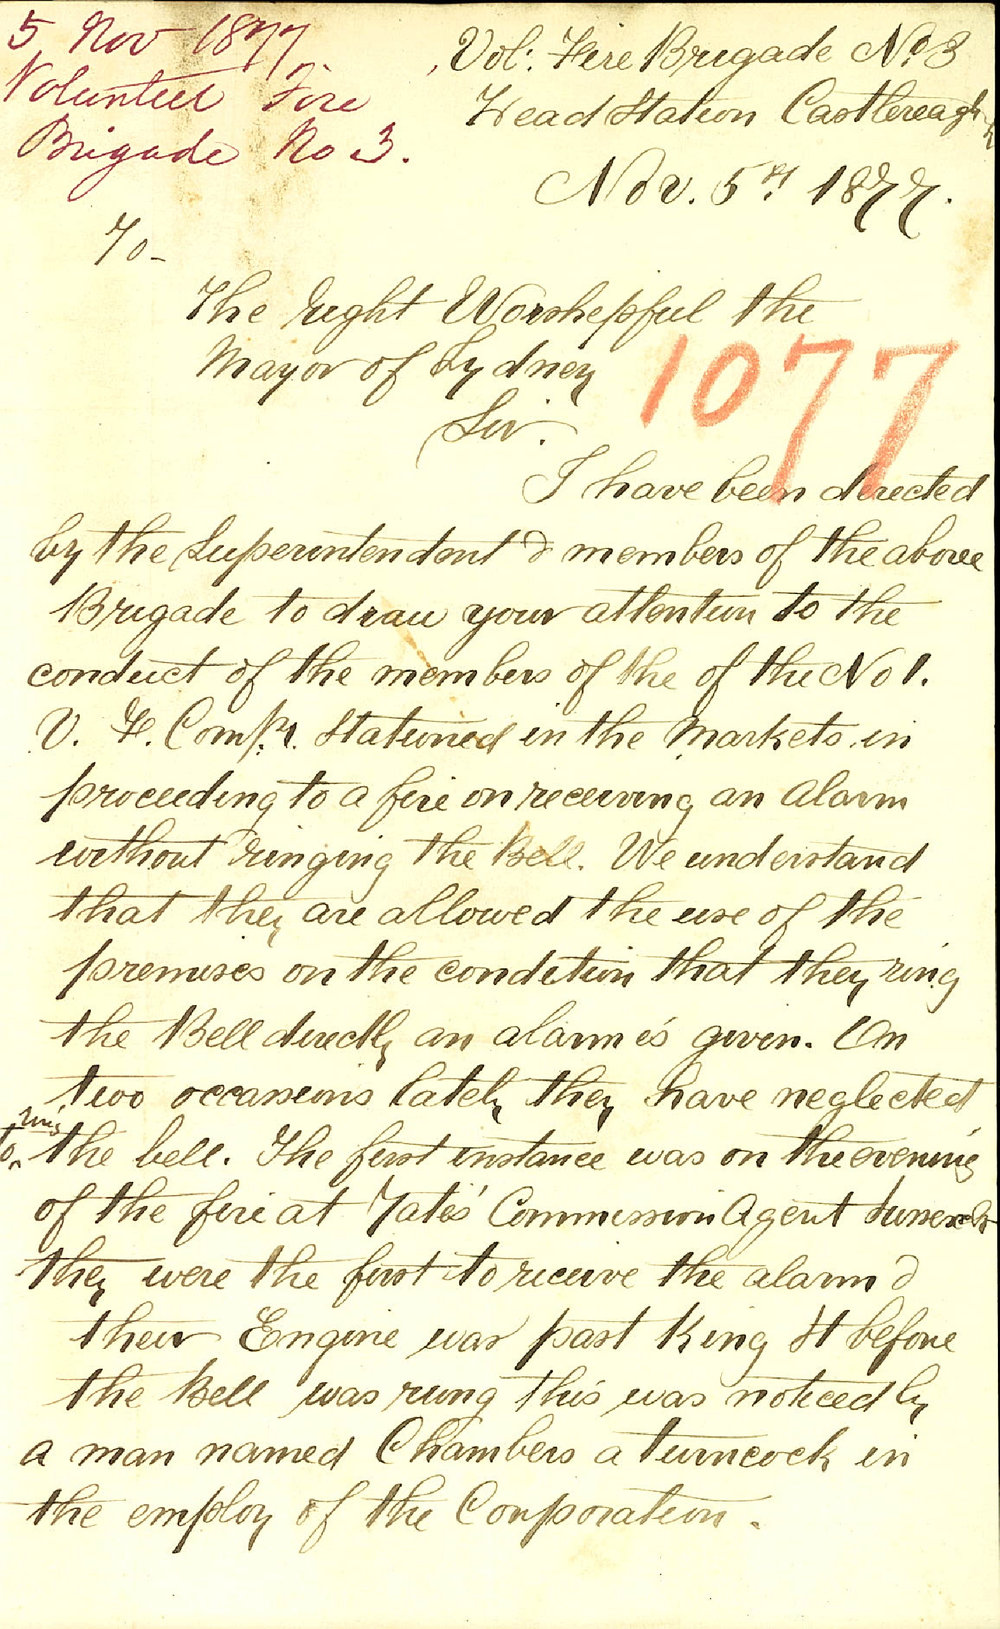 5 Nov 1877
Volunteer Fire
Brigade No 3.
Vol: Fire Brigade No 3
Head Station Castlereagh
Nov. 5th 1877.
To-
The Right Worshepful the
Mayor of Sydney
1077
Sir.
I have been directed
by the Superintendent & members of the above
Brigade to draw your attention to the
conduct of the members of the of the No 1.
V. F. Compy. Stationed in the Markets in
proceeding to a fire on receiving an alarm
without ringing the Bell. We understand
that they are allowed the use of the
premises on the condition that they ring
the Bell directly an alarm is given. On
two occasions lately they have neglected
to ring the bell. The first instance was on the evening
of the fire at Yates' Commission Agent Sussex St
they were the first to receive the alarm &
their Engine was past King St before
the Bell was rung this was noticed by
a man named Chambers a turncock in
the employ of the Corporation.